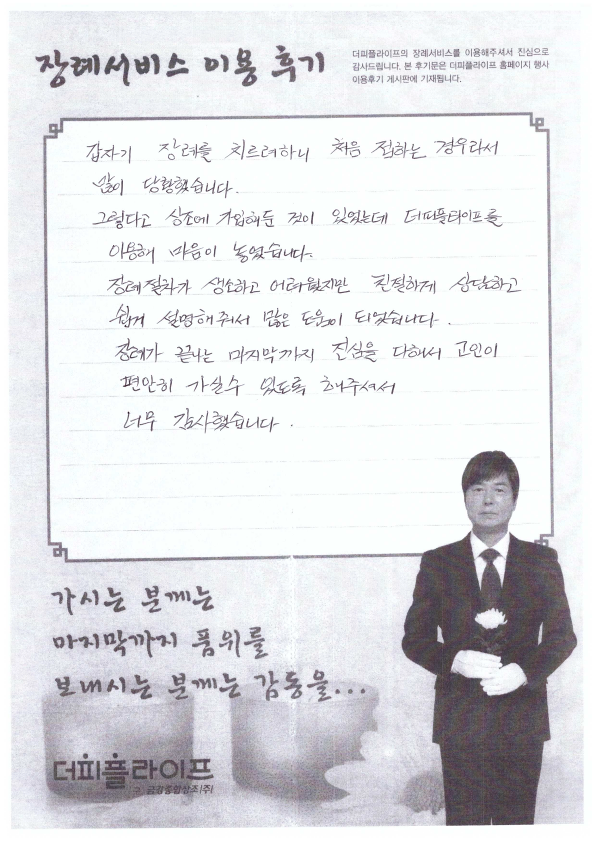 장례서비스 이용 후기
더피플라이프의 장례서비스를 이용해주셔서 진심으로
감사드립니다. 본 후기문은 더피플라이프 홈페이지 행사
이용후기 게시판에 기재됩니다.
갑자기 장례를 치르려하니 처음 접하는 경우라서
많이 당황했습니다.
그렇다고 상조에 가입해둔 것이 있었는데 더피플라이프를
이용해 마음이 놓였습니다.
장례절차가 생소하고 어려웠지만 친절하게 상담하고
쉽게 설명해줘서 많은 도움이 되었습니다.
장례가 끝나는 마지막까지 진심을 다해서 고인이
편안히 가실수 있도록 해주셔서
너무 감사했습니다.
가시는 분께는
마지막까지 품위를
보내시는 분께는 감동을...
더피플라이프
금강종합상조(주)